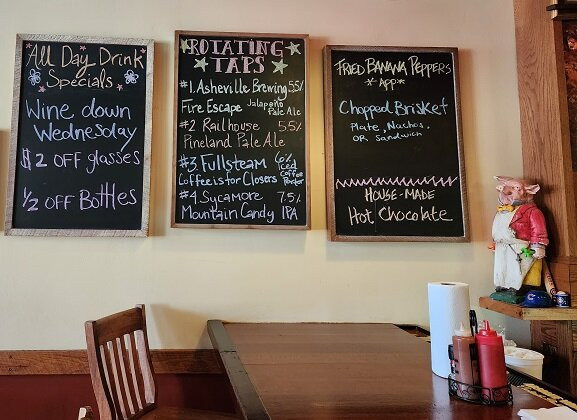 All Day Drink
Specials
Wine down
Wednesday
$2 off glasses
1/2 off Bottles
ROTATING
TAPS
#1 Asheville Brewing 5.5%
Fire Escape Jalapeño Pale Ale
#2 Railhouse 5.5%
Pineland Pale Ale
#3 Fullsteam 6%
Coffee is for Closers Iced Coffee Porter
#4 Sycamore 7.5%
Mountain Candy IPA
Fried Banana Peppers
*App*
Chopped Brisket
Plate, Nachos,
or Sandwich
House-Made
Hot Chocolate